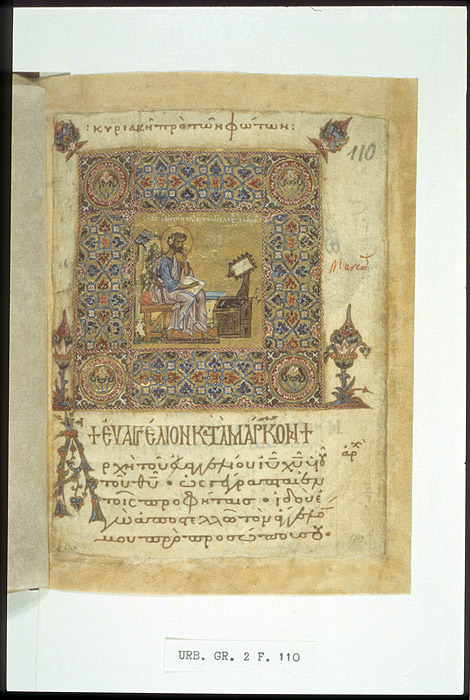 : κυριακῇ πρὸ τῶν φώτων :
110
+ ΕΥΑΓΓΈΛΙΟΝ Κ ΤᾺ ΜΆΡΚΟΝ +
ἀρχ
Ἀρχὴ τοῦ εὐαγγελίου ἰῦ χῦ υἱοῦ
τοῦ θῦ · ὡς γέγραπται ἐν
τοῖς προφήταις · ἰδοὺ ἐ
γὼ ἀποστέλλω τὸν ἄγγελόν
μου πρὸ προσώπου σου ·
110
URB. GR. 2 F. 110